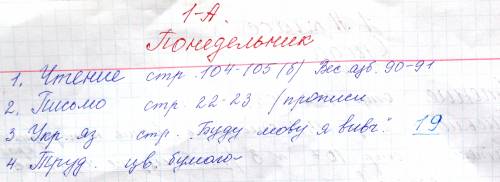 1-А.
Понедельник
1. Чтение стр. 104-105 (б) Вес ацв. 90-91
2. Письмо стр. 22-23 (прописи
3 Укр. яз стр. „Буду мову я вивч." 19
4. Труд. цв. бумага